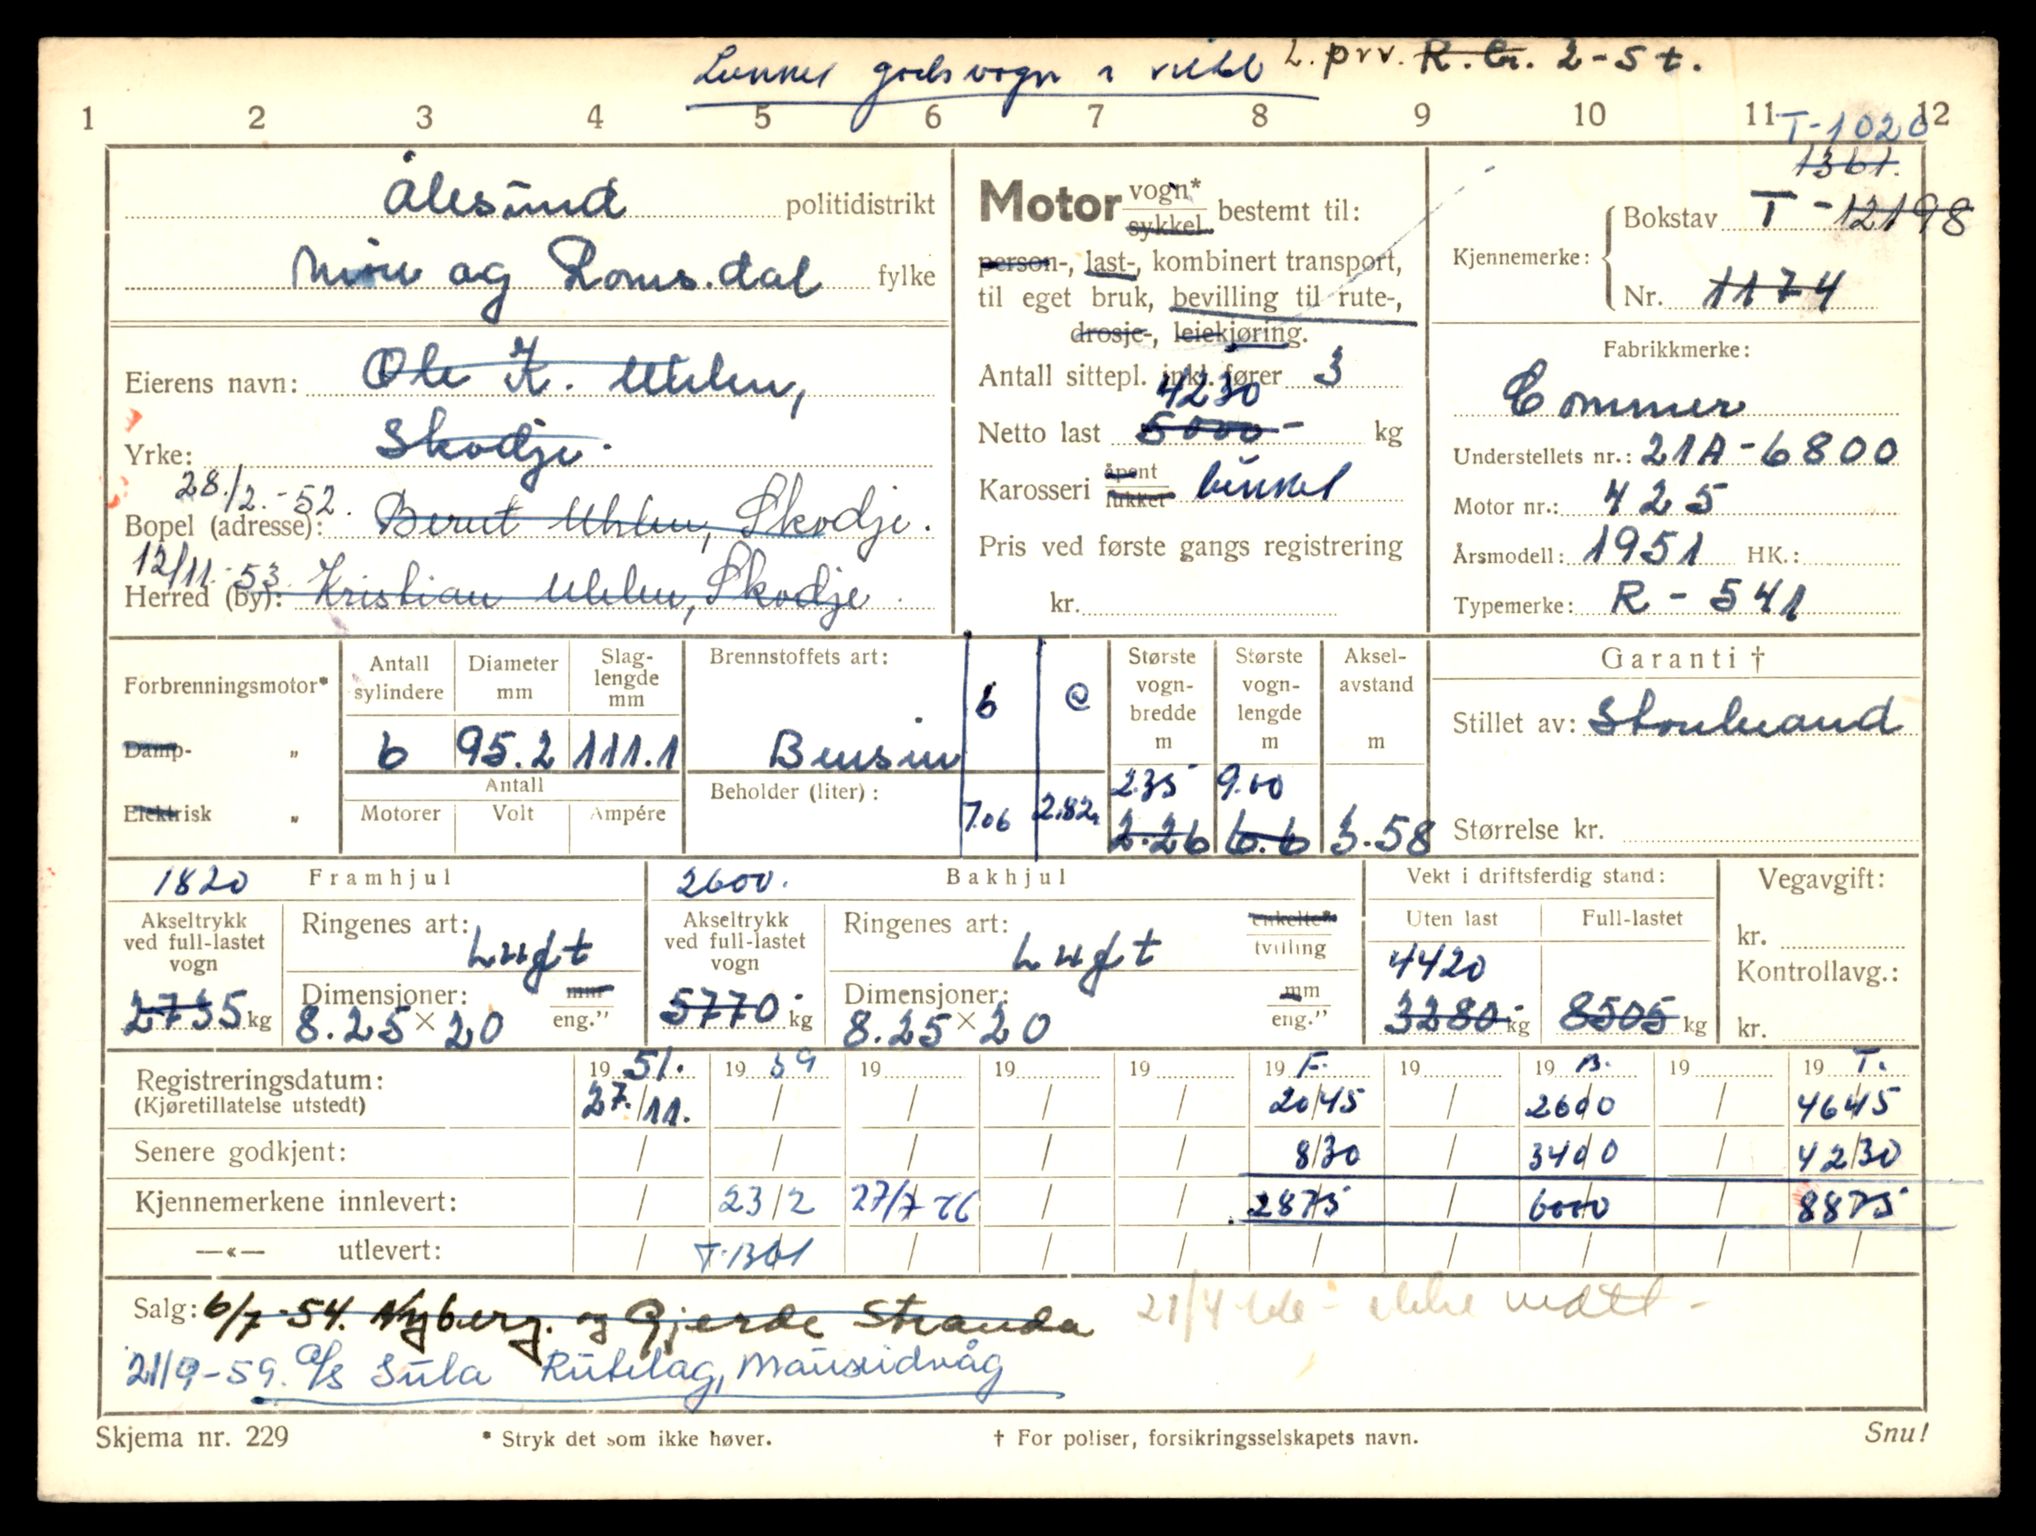 godsvogn L.prv. R. 2-5 t.
1 2 3 4 5 6 7 8 9 10 11 12
T-1020
1361.
Ålesund politidistrikt
Møre og Romsdal fylke
Eierens navn: Ole K. Uhlen,
Yrke: Skodje.
28./2.-52.
Bopel (adresse): Berut Uhlen, Skodje.
12/11.-53
Herred (by): Kristian Uhlen, Skodje
Motor vogn* sykkel bestemt til:
person-, last-, kombinert transport,
til eget bruk, bevilling til rute-,
drosje-, leiekjøring.
Antall sittepl. inkl. fører 3
4230
Netto last 5000- kg
Karosseri åpent lukket
Pris ved første gangs registrering
kr.
Kjennemerke: Bokstav T-12198
Nr. 1174
Fabrikkmerke:
Commer
Understellets nr.: 21A-6800
Motor nr.: 425
Årsmodell: 1951 HK.:
Typemerke: R-541
Forbrenningsmotor*
Damp- „
Elektrisk „
Antall sylindere
Diameter mm
Slaglengde mm
6 95.2 111.1
Antall
Motorer Volt Ampére
Brennstoffets art:
Bensin
Beholder (liter):
b e
7.06 2.82
Største vognbredde m
2.35
2.26
Største vognlengde m
9.00
6.6
Akselavstand m
3.58
Garanti †
Stillet av: Storebrand
Størrelse kr.
1820 Framhjul
Akseltrykk ved full-lastet vogn
2735 kg
Ringenes art: Luft
Dimensjoner: mm eng.”
8.25×20
2600. Bakhjul
Akseltrykk ved full-lastet vogn
5770- kg
Ringenes art: Luft enkelte* tvilling
Dimensjoner: mm eng.”
8.25×20
Vekt i driftsferdig stand:
Uten last Full-lastet
4420
3280- kg 8505 kg
Vegavgift:
kr.
Kontrollavg.:
kr.
19 51. 19 59 19 19 19 19 F. 19 19 B. 19 19 T.
Registreringsdatum:
(Kjøretillatelse utstedt) 27./11. 2045 2600 4645
Senere godkjent: 830 3400 4230
Kjennemerkene innlevert: 23/2 27/7 66 2875 6000 8875
—«— utlevert: T-1361
Salg: 6/7-54. Nyberg. og Gjerde Stranda 21/4
21/9-59. a/s Sula Rutelag, Mauseidvåg
Skjema nr. 229 * Stryk det som ikke høver. † For poliser, forsikringsselskapets navn. Snu!